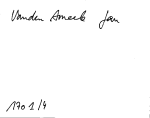 Vanden Ameele Jan
1701/4